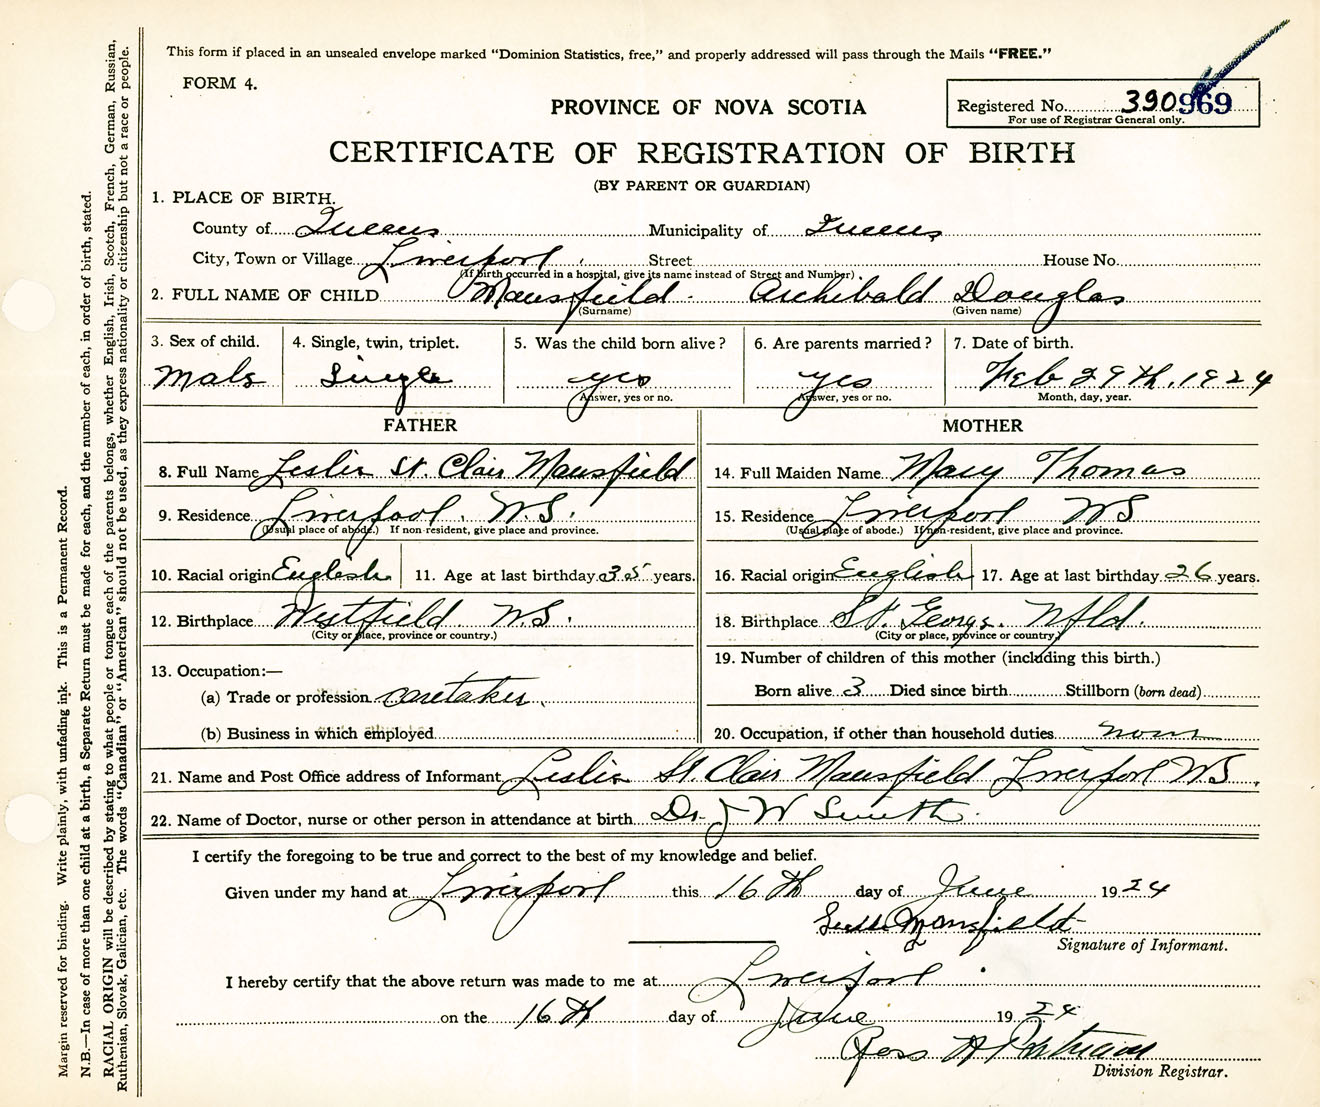 This form if placed in an unsealed envelope marked "Dominion Statistics, free," and properly addressed will pass through the Mails "FREE."
FORM 4.
PROVINCE OF NOVA SCOTIA
Registered No. 390969
For use of Registrar General only.
CERTIFICATE OF REGISTRATION OF BIRTH
(BY PARENT OR GUARDIAN)
1. PLACE OF BIRTH.
County of Queens Municipality of Queens
City, Town or Village Liverpool Street House No.
(If birth occurred in a hospital, give its name instead of Street and Number)
2. FULL NAME OF CHILD Mansfield Archibald Douglas
(Surname) (Given name)
3. Sex of child. 4. Single, twin, triplet. 5. Was the child born alive? 6. Are parents married? 7. Date of birth.
Male Single yes yes Feb 29th, 1924
Answer, yes or no. Answer, yes or no. Month, day, year.
FATHER MOTHER
8. Full Name Leslie St. Clair Mansfield 14. Full Maiden Name Mary Thomas
9. Residence Liverpool, N.S. 15. Residence Liverpool NS
(Usual place of abode.) If non-resident, give place and province. (Usual place of abode.) If non-resident, give place and province.
10. Racial origin English 11. Age at last birthday 35 years. 16. Racial origin English 17. Age at last birthday 26 years.
12. Birthplace Westfield N.S. 18. Birthplace St. Georges Nfld.
(City or place, province or country.) (City or place, province or country.)
13. Occupation:— 19. Number of children of this mother (including this birth.)
(a) Trade or profession caretaker Born alive 3 Died since birth Stillborn (born dead)
(b) Business in which employed 20. Occupation, if other than household duties none
21. Name and Post Office address of Informant Leslie St. Clair Mansfield Liverpool NS.
22. Name of Doctor, nurse or other person in attendance at birth Dr. J W Smith
I certify the foregoing to be true and correct to the best of my knowledge and belief.
Given under my hand at Liverpool this 16th day of June 1924
Leslie Mansfield
Signature of Informant.
I hereby certify that the above return was made to me at Liverpool
on the 16th day of June 1924
Ross H
Division Registrar.
Margin reserved for binding. Write plainly, with unfading ink. This is a Permanent Record.
N.B.—In case of more than one child at a birth, a Separate Return must be made for each, and the number of each, in order of birth, stated.
RACIAL ORIGIN will be described by stating to what people or tongue each of the parents belongs, whether English, Irish, Scotch, French, German, Russian,
Ruthenian, Slovak, Galician, etc. The words "Canadian" or "American" should not be used, as they express nationality or citizenship but not a race or people.